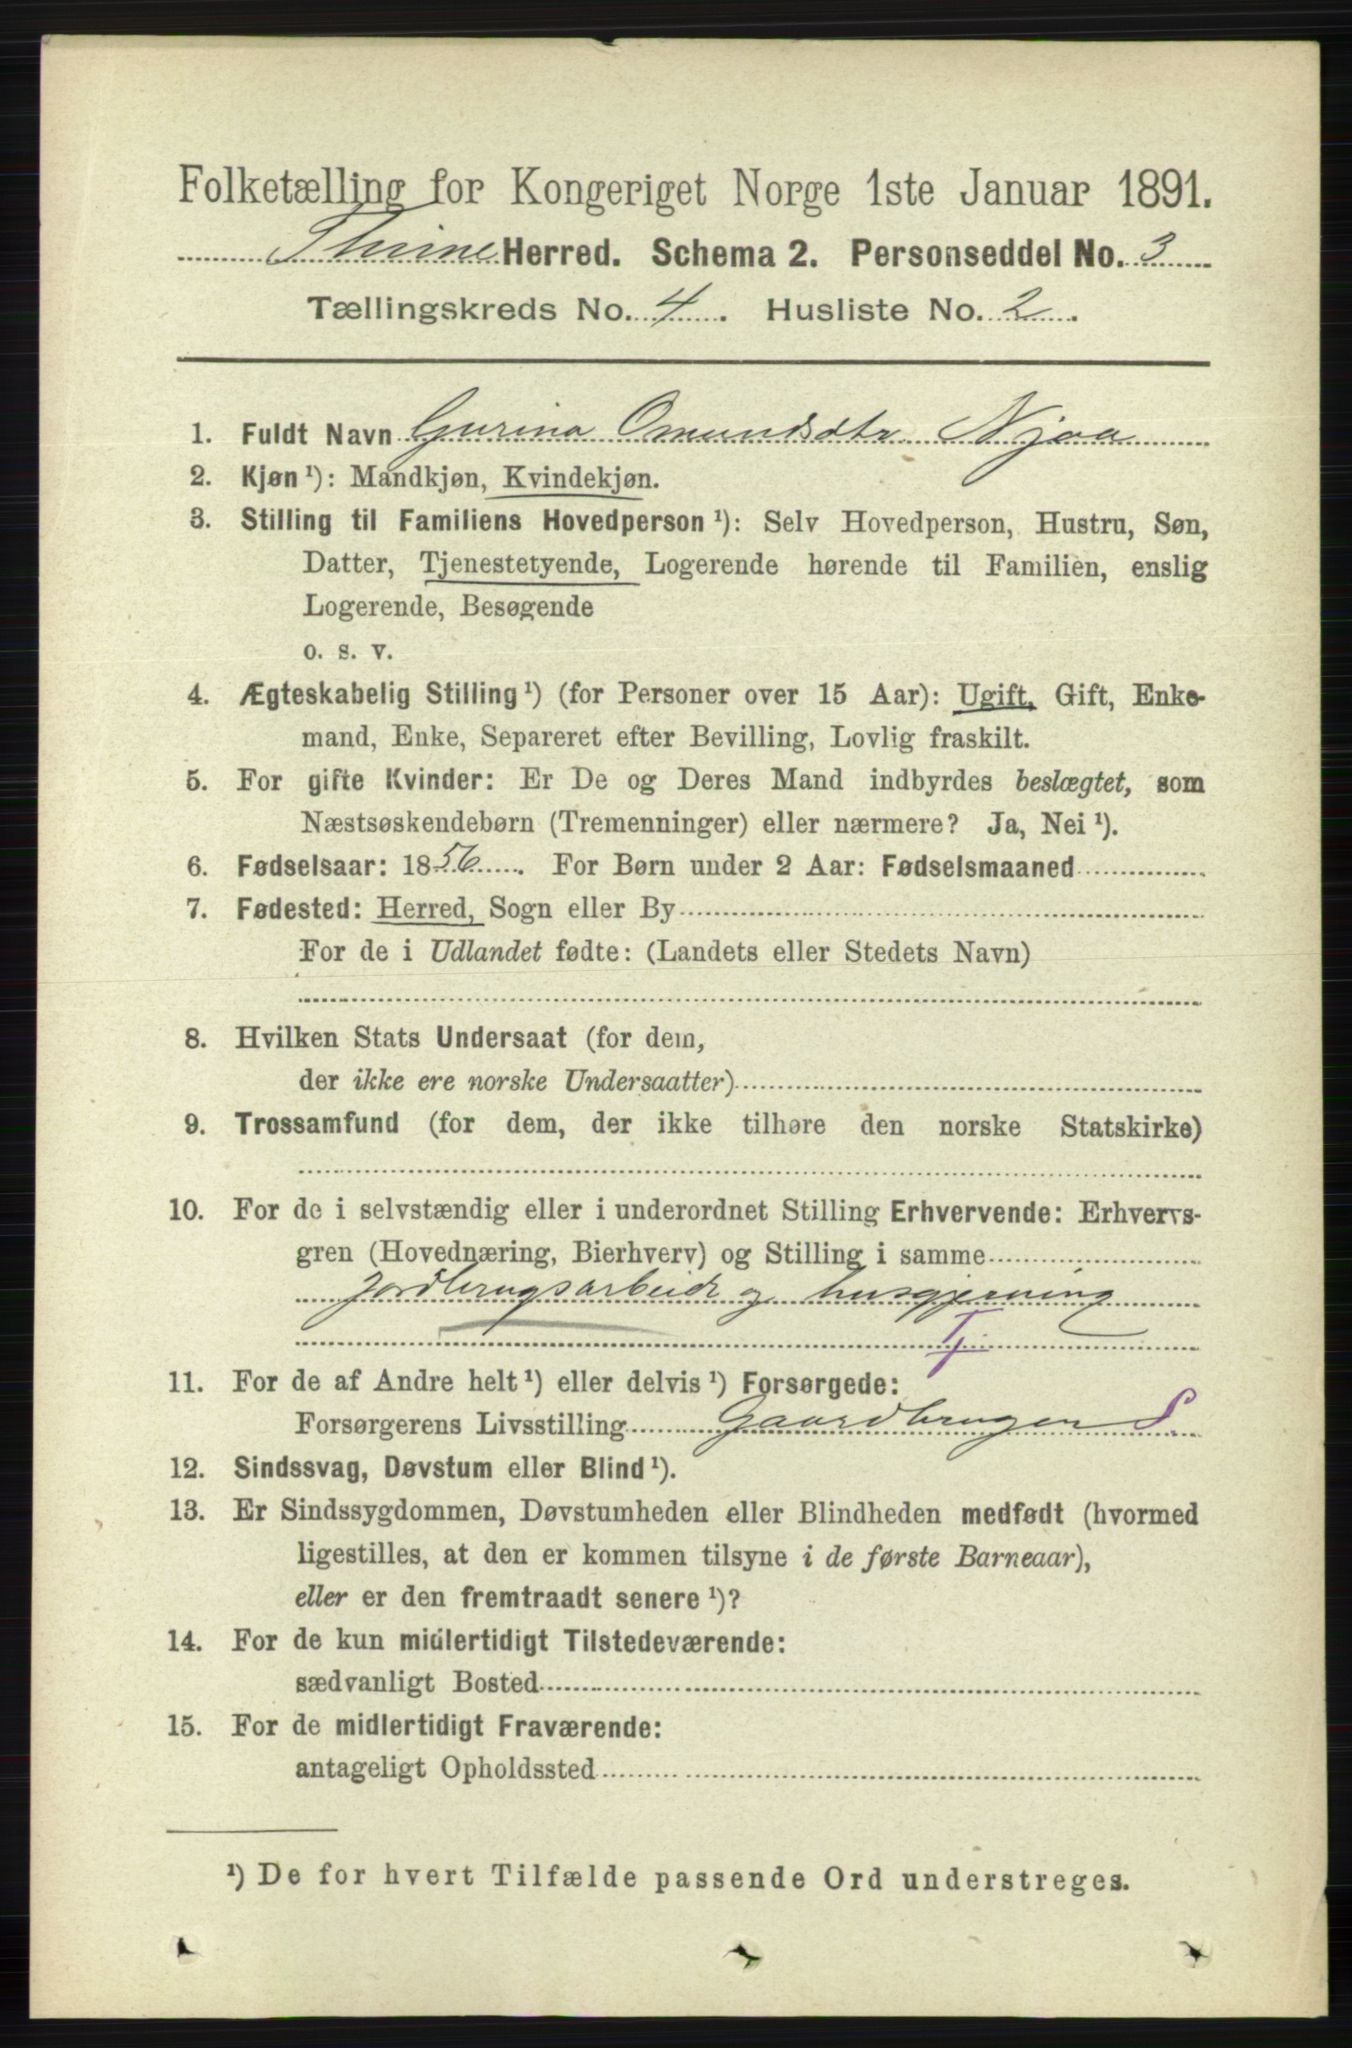 Folketælling for Kongeriget Norge 1ste Januar 1891.
Thime Herred. Schema 2. Personseddel No. 3
Tællingskreds No. 4. Husliste No. 2.
1. Fuldt Navn Gurina Omundsdtr. Njaa
2. Kjøn ¹): Mandkjøn, Kvindekjøn.
3. Stilling til Familiens Hovedperson ¹): Selv Hovedperson, Hustru, Søn,
Datter, Tjenestetyende, Logerende hørende til Familien, enslig
Logerende, Besøgende
o. s. v.
4. Ægteskabelig Stilling ¹) (for Personer over 15 Aar): Ugift, Gift, Enke-
mand, Enke, Separeret efter Bevilling, Lovlig fraskilt.
5. For gifte Kvinder: Er De og Deres Mand indbyrdes beslægtet, som
Næstsøskendebørn (Tremenninger) eller nærmere? Ja, Nei ¹).
6. Fødselsaar: 1856. For Børn under 2 Aar: Fødselsmaaned
7. Fødested: Herred, Sogn eller By
For de i Udlandet fødte: (Landets eller Stedets Navn)
8. Hvilken Stats Undersaat (for dem,
der ikke ere norske Undersaatter)
9. Trossamfund (for dem, der ikke tilhøre den norske Statskirke)
10. For de i selvstændig eller i underordnet Stilling Erhvervende: Erhvervs-
gren (Hovednæring, Bierhverv) og Stilling i samme
Jordbrugsarbeide og husgjerning
Tj.
11. For de af Andre helt ¹) eller delvis ¹) Forsørgede:
Forsørgerens Livsstilling Gaardbrugen S.
12. Sindssvag, Døvstum eller Blind ¹).
13. Er Sindssygdommen, Døvstumheden eller Blindheden medfødt (hvormed
ligestilles, at den er kommen tilsyne i de første Barneaar),
eller er den fremtraadt senere ¹)?
14. For de kun midlertidigt Tilstedeværende:
sædvanligt Bosted
15. For de midlertidigt Fraværende:
antageligt Opholdssted
¹) De for hvert Tilfælde passende Ord understreges.